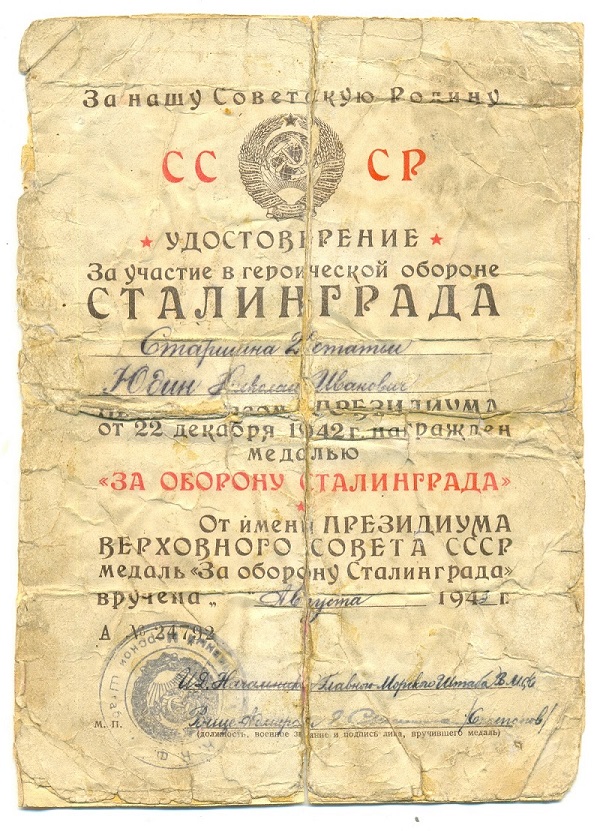 За нашу Советскую Родину
СС СР
УДОСТОВЕРЕНИЕ
За участие в героической обороне
СТАЛИНГРАДА
Старшина 2 статьи
Юдин Николай Иванович
ПРЕЗИДИУМА
от 22 декабря 1942 г. награжден
медалью
«ЗА ОБОРОНУ СТАЛИНГРАДА»
От имени ПРЕЗИДИУМА
ВЕРХОВНОГО СОВЕТА СССР
медаль «За оборону Сталинграда»
вручена „ Августа 1943 г.
А № 24792
Главного Морского Штаба В.М.Ф.
М. П.
(должность, военное звание и подпись лица, вручившего медаль)